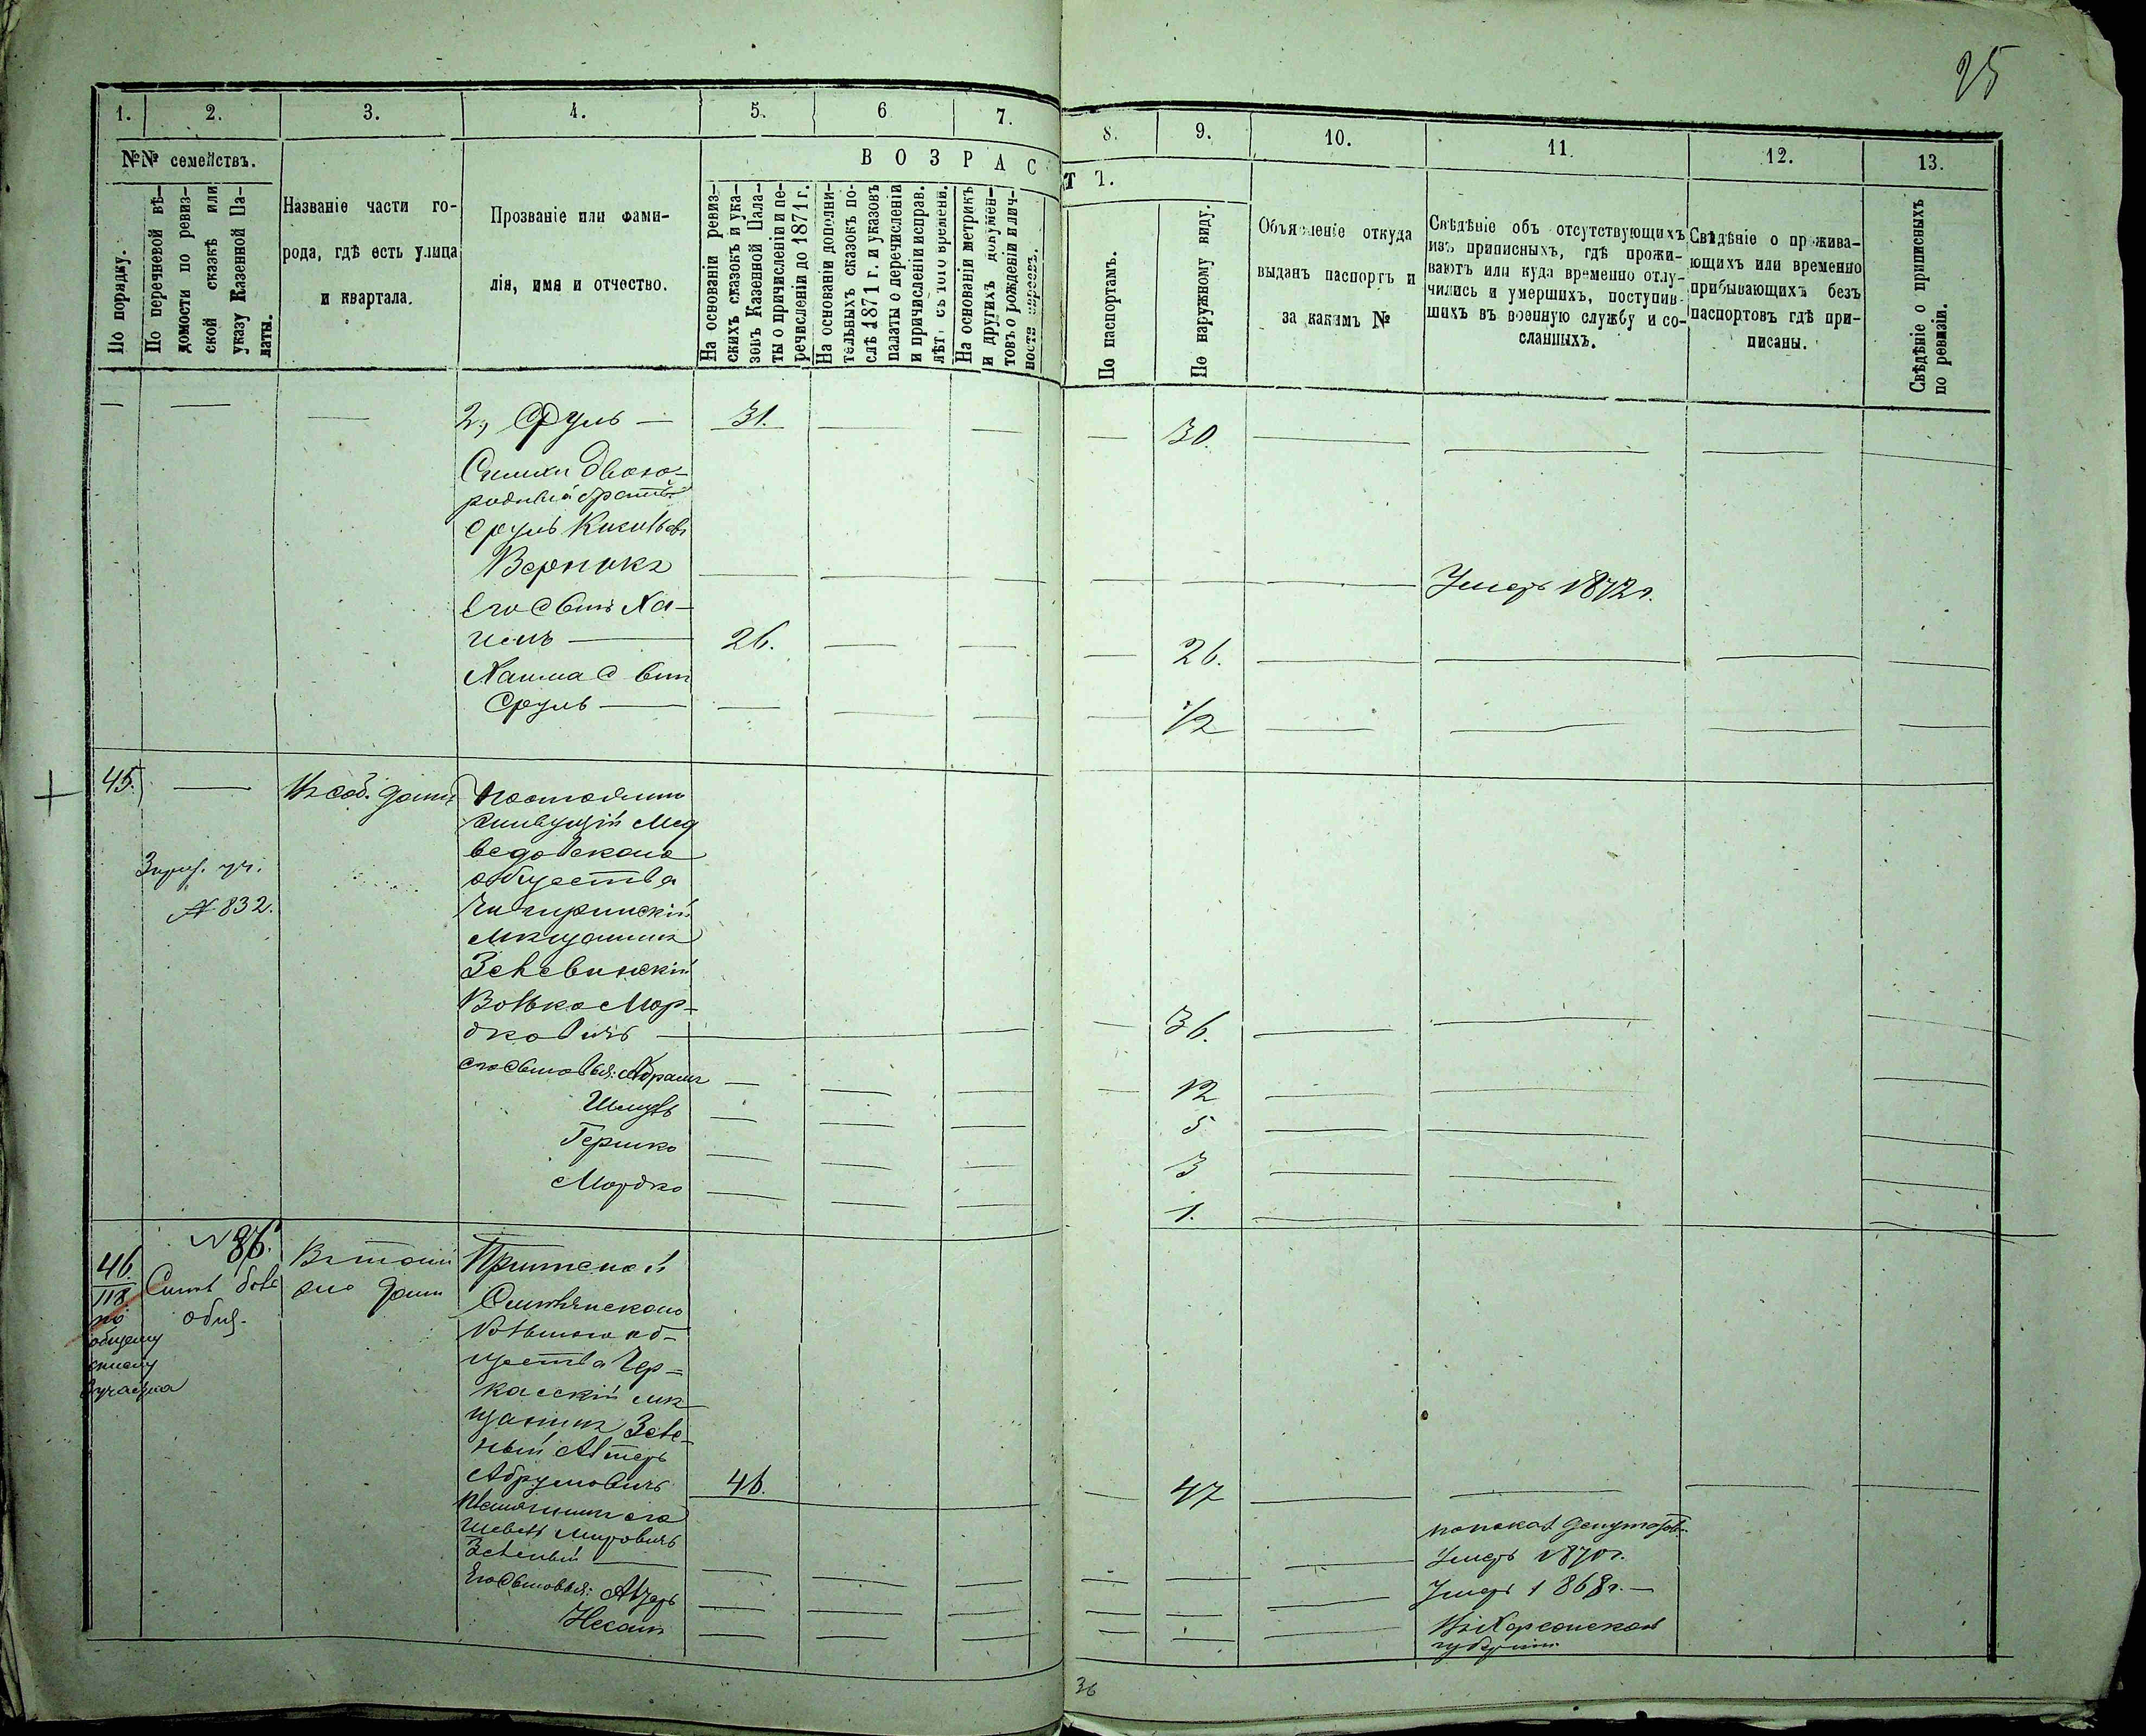 25
1. 2. 3. 4. 5. 6 7. 8. 9. 10. 11. 12. 13.
№№ семействъ.
По порядку.
По перечневой вѣ-
домости по ревиз-
ской сказкѣ или
указу Казенной Па-
латы.
Названіе части го-
рода, гдѣ есть улица
и квартала.
Прозваніе или фами-
лія, имя и отчество.
ВОЗРАСТ
На основаніи ревиз-
скихъ сказокъ и ука-
зовъ Казенной Пала-
ты о причисленіи и пе-
речисленіи до 1871 г.
На основаніи дополни-
тельныхъ сказокъ по-
слѣ 1871 г. и указовъ
палаты о перечисленіи
и причисленіи исправ.
лѣт. съ того времени.
На основаніи метрикъ
и другихъ докумен-
товъ о рожденіи и лич-
ности
По паспортамъ.
По наружному виду.
Объясненіе откуда
выданъ паспортъ и
за какимъ №
Свѣдѣніе об отсутствующихъ
изъ приписныхъ, гдѣ прожи-
ваютъ или куда временно отлу-
чились и умершихъ, поступив-
шихъ въ военную службу и со-
сланныхъ.
Свѣдѣніе о прожива-
ющихъ или временно
прибывающихъ безъ
паспортовъ гдѣ при-
писаны.
Свѣдѣніе о приписныхъ
по ревизіи.
2, Сруль — 31. 30.
двою-
родный братъ
Сруль
Верникъ Умеръ 1872 г.
Его Сынъ Ха-
26. 26.
Хаима Сынъ
Сруль — 1/2
45.
Постоянно
живущій Мед
ведовскаго
общества
Чигиринскій
мѣщанинъ
Зелевинскій
Волько Мор-
дковичъ — 36.
его сыновья: Абрамъ 12
Шмуль 5
Гершко 3
Мордко 1.
№ 832.
46
118
по
общему
списку
участка
№ 86.
общ.
Въ томъ
же домѣ
Приписной
Смѣлянскаго
общества Чер-
касскій мѣ
щанинъ Зеле-
ный Альтеръ
Абрумовичъ 46. 47
Племянникъ его
Зеленый
Умеръ 1870 г.
Его Сыновья:
Умеръ 1868 г. —
Въ Херсонской
губерніи
36